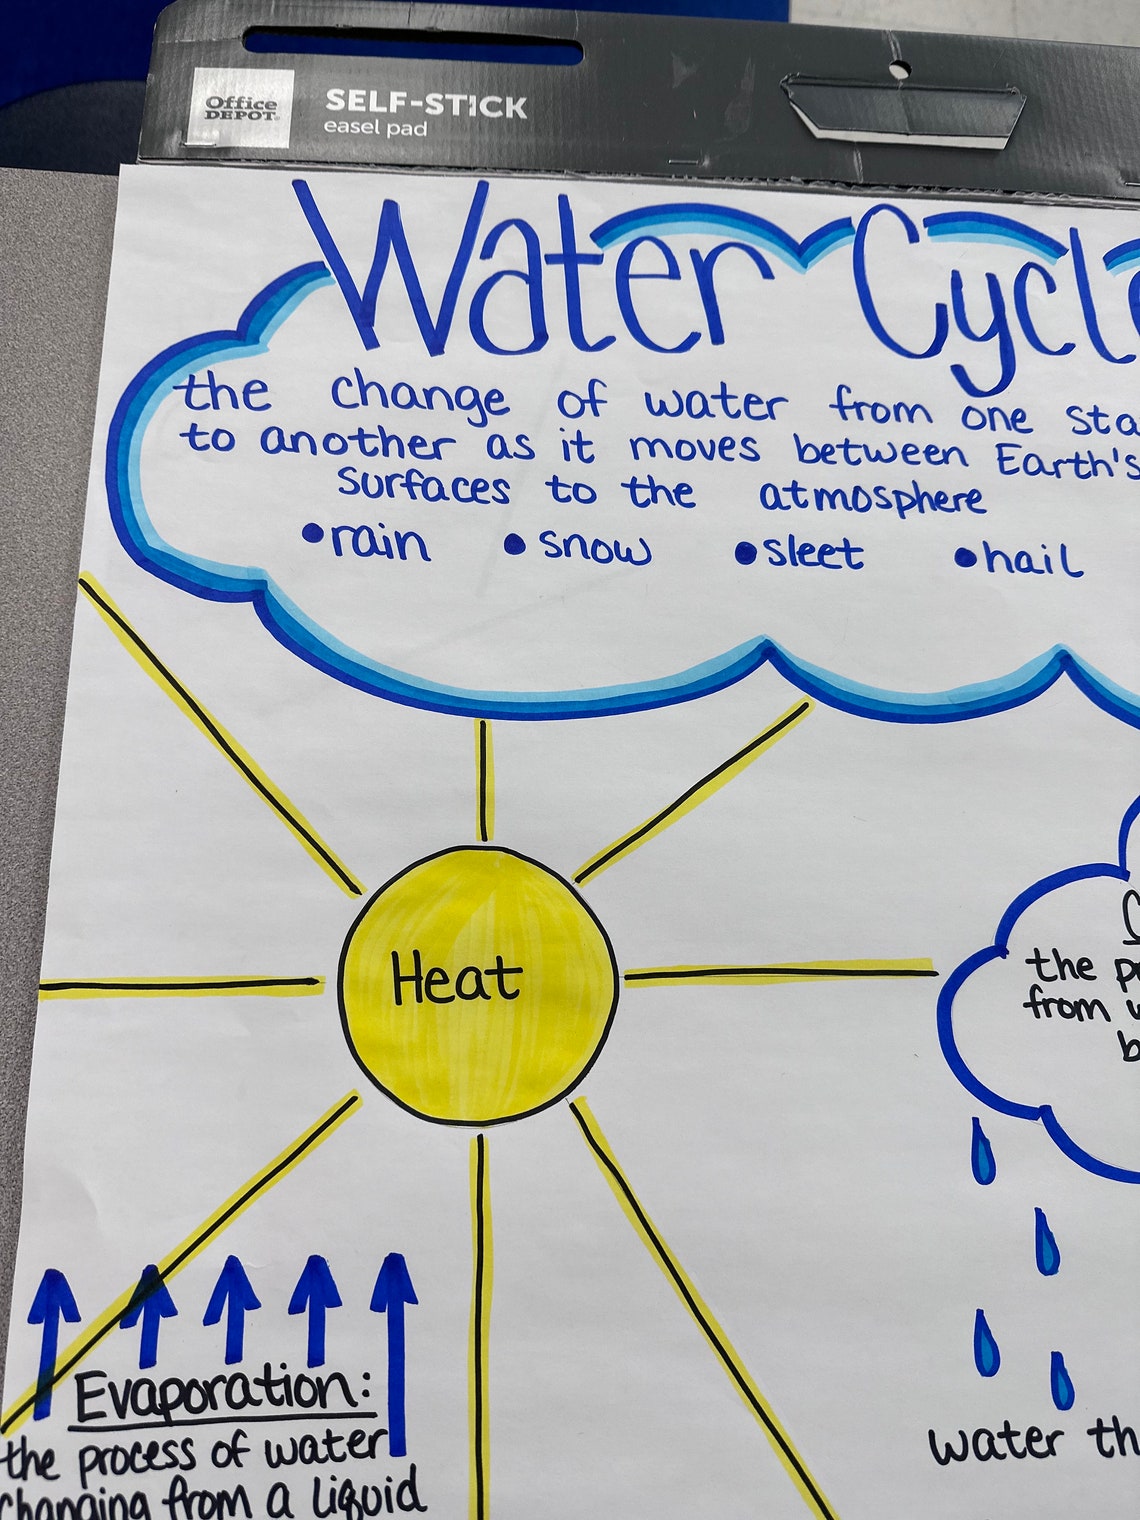 Office
DEPOT
SELF-STICK
easel pad
Water
the change of water from one
to another as it moves between Earth's
surfaces to the atmosphere
•rain •snow •sleet •hail
Heat
the
from
Evaporation:
the process of water
changing from a liquid
water